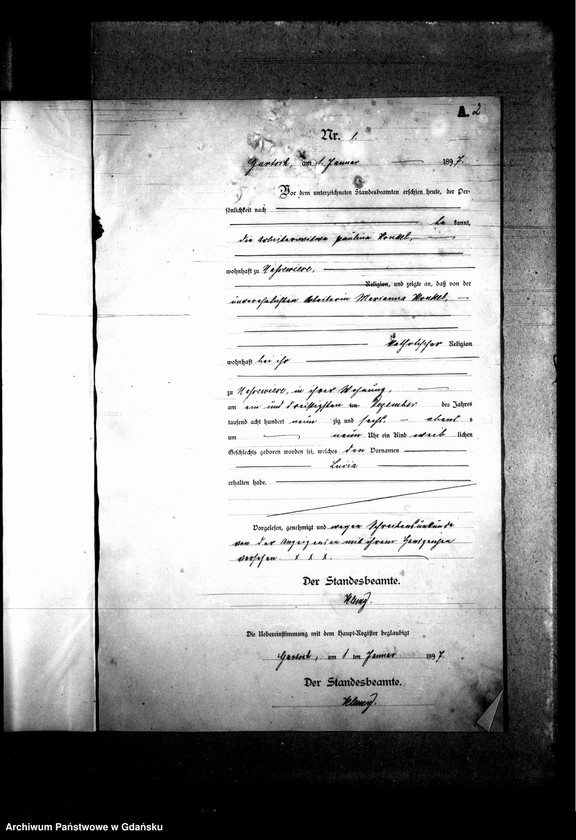 A. 2
Nr. 1.
am 1. Januar 1897.
Vor dem unterzeichneten Standesbeamten erschien heute, der Per-
sönlichkeit nach
be kannt,
die Arbeiterwitwe Paulina
wohnhaft zu
Religion, und zeigte an, daß von der
unverehelichten Arbeiterin Marianna
katholischer Religion
wohnhaft bei ihr
zu in ihrer Wohnung,
am ein und dreißigsten ten Dezember des Jahres
tausend acht hundert neun zig und sechs, abends
um neun Uhr ein Kind weib lichen
Geschlechts geboren worden sei, welches den Vornamen
Lucia
erhalten habe.
Vorgelesen, genehmigt und wegen Schreibensunkunde
von der Anzeigenden mit ihrem Handzeichen
versehen. x x x.
Der Standesbeamte.
Die Uebereinstimmung mit dem Haupt-Register beglaubigt
am 1 ten Januar 1897.
Der Standesbeamte.
Archiwum Państwowe w Gdańsku